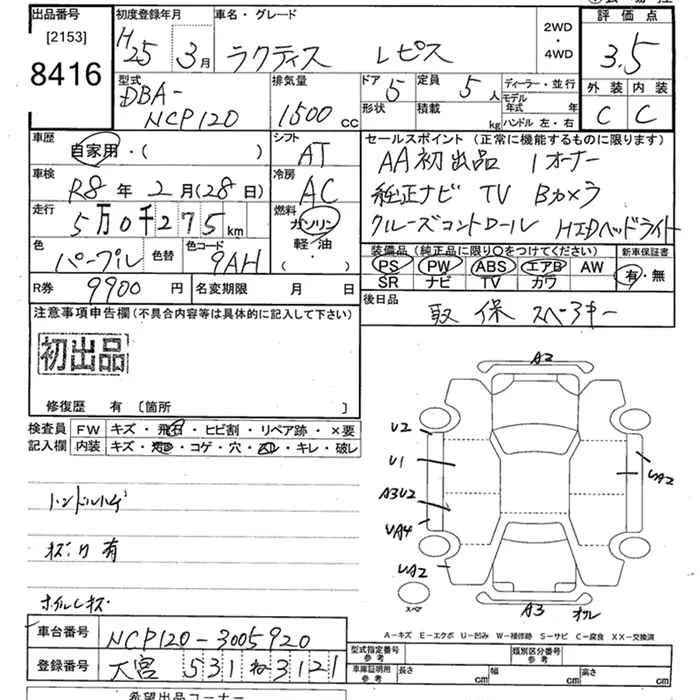 出品番号 初度登録年月 車名・グレード 2WD・4WD 評価点
[2153]
8416
H25年 3月 ラクティス レピス 3.5
型式 排気量 ドア 5 定員 5人 ディーラー・並行 外装 内装
DBA-
NCP120 1500cc 形状 積載 kg モデル年式 年 ハンドル 左・右 C C
車歴 シフト セールスポイント (正常に機能するものに限ります)
自家用・( ) AT AA初出品 1オーナー
車検 冷房 純正ナビ TV Bカメラ
R8年2月(28日) AC クルーズコントロール HIDヘッドライト
走行 燃料
5万0千275km ガソリン
軽・油
( )
色 色替 色コード 装備品 (純正品に限り○をつけてください) 新車保証書
パープル 9AH PS PW ABS エアB AW 有・無
SR ナビ TV カワ
R券 9900円 名変期限 月 日 後日品 取 保 スペアキー
注意事項申告欄(不具合内容等は具体的に記入して下さい)
初出品
修復歴 有 〔箇所 〕
検査員 FW キズ・飛石・ヒビ割・リペア跡・×要
記入欄 内装 キズ・コゲ・穴・キレ・破レ
A2
U2
U1
A3U2
UA4
UA2
UA2
スペア
A3
ハンドルハゲ
有
ホイルキズ
A-キズ E-エクボ U-凹み W-補修跡 S-サビ C-腐食 XX-交換済
車台番号 NCP120-3005920
登録番号 大宮 531 ね 3121
型式指定番号 参考 類別区分番号 参考
車庫証明用 参考 長さ cm 幅 cm 高さ cm
希望出品コーナー